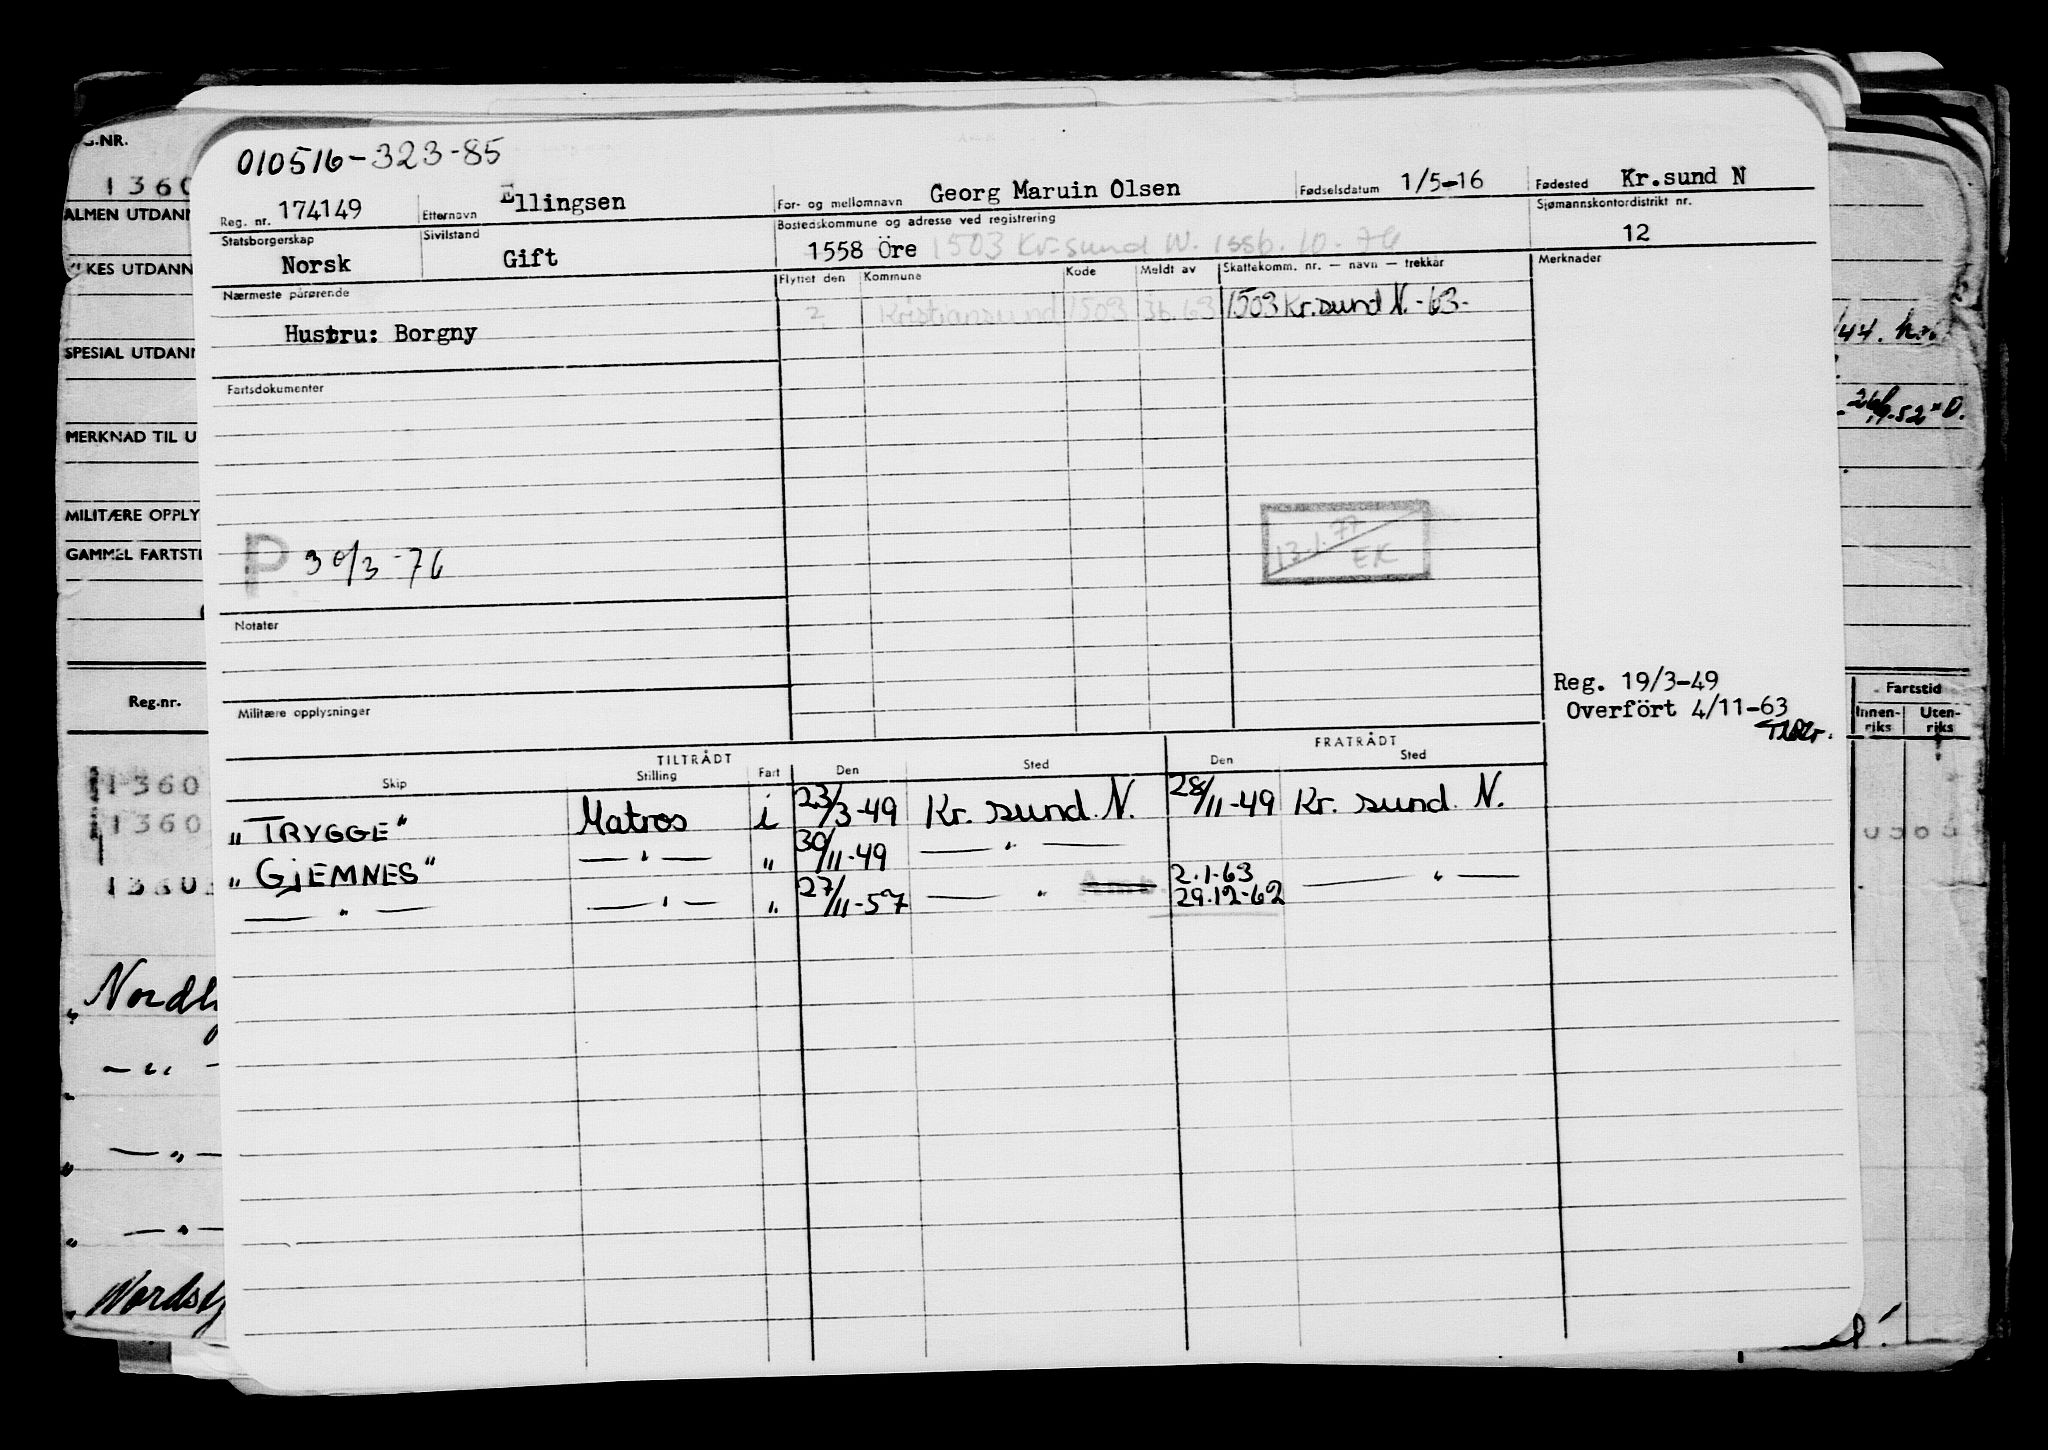 G.NR.
1360
ALMEN UTDANN
KES UTDANN
SPESIAL UTDANN
MERKNAD TIL U
MILITÆRE OPPLY
GAMMEL FARTSTI
Reg.nr.
1360
1360
1360
Nordl
Nordst
010516-323-85
Reg. nr. 174149 Etternavn Ellingsen For- og mellomnavn Georg Maruin Olsen Fødselsdatum 1/5-16 Fødested Kr.sund N
Statsborgerskap Norsk Sivilstand Gift Bostedskommune og adresse ved registrering 1558 Öre 1503 Kr.sund N. issb. 10-76 Sjømannskontordistrikt nr. 12
Nærmeste pårørende Flyttet den Kommune Kode Meldt av Skattekomm. nr. — navn — trekkår Merknader
2 Kristiansund 1503 sb. 63 1503 Kr.sund N. -63-
Hustru: Borgny
Fartsdokumenter
P 30/3-76
13.1.77
EK
Notater
Militære opplysninger
Reg. 19/3-49
Overført 4/11-63
TILTRÅDT FRATRÅDT
Skip Stilling Fart Den Sted Den Sted
"TRYGGE" Matros i 23/3-49 Kr. sund. N. 28/11-49 Kr. sund. N.
"GJEMNES" —"— " 30/11-49 —"—
2.1.63
—"— —"— " 27/11-57 —"— 29.12-62 —"—
/44.
52
Fartstid
Innen-riks Uten-riks